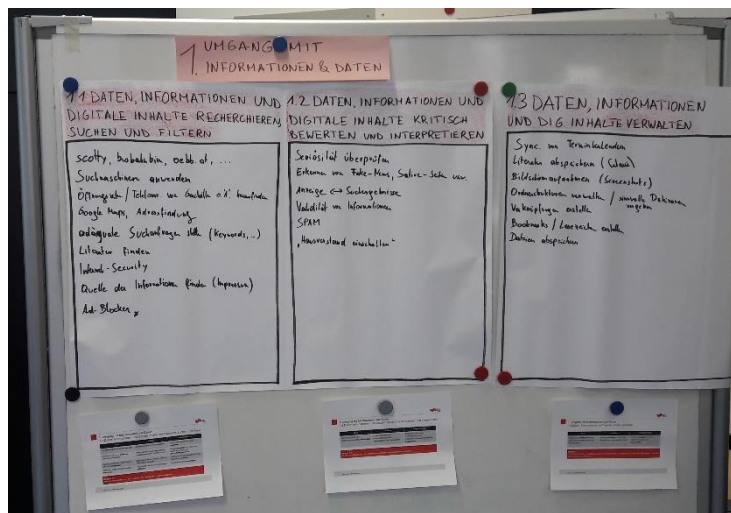 1. UMGANG MIT
INFORMATIONEN & DATEN
1.1 DATEN, INFORMATIONEN UND
DIGITALE INHALTE RECHERCHIEREN,
SUCHEN UND FILTERN
scotty, bababubin, oebb.at, ...
Suchmaschinen anwenden
Google Maps, Adressfindung
adäquate Suchanfragen (Keywords,...)
Literatur finden
Security
Quelle der Informationen finden (Impressum)
Ad-Blocker
1.2 DATEN, INFORMATIONEN UND
DIGITALE INHALTE KRITISCH
BEWERTEN UND INTERPRETIEREN
Seriösität überprüfen
Erkennen von Fake-News, Satire-Seiten
Anzeige ↔ Suchergebnisse
Validität von Informationen
SPAM
„Hausverstand einschalten"
1.3 DATEN, INFORMATIONEN
UND DIG. INHALTE VERWALTEN
Sync. von Terminkalendern
Literatur abspeichern (Citavi)
Bildschirmaufnahmen (Screenshots)
Ordnerstrukturen verwalten / sinnvolle Dateinamen
vergeben
Verknüpfungen erstellen
Bookmarks / Lesezeichen erstellen
Dateien abspeichern